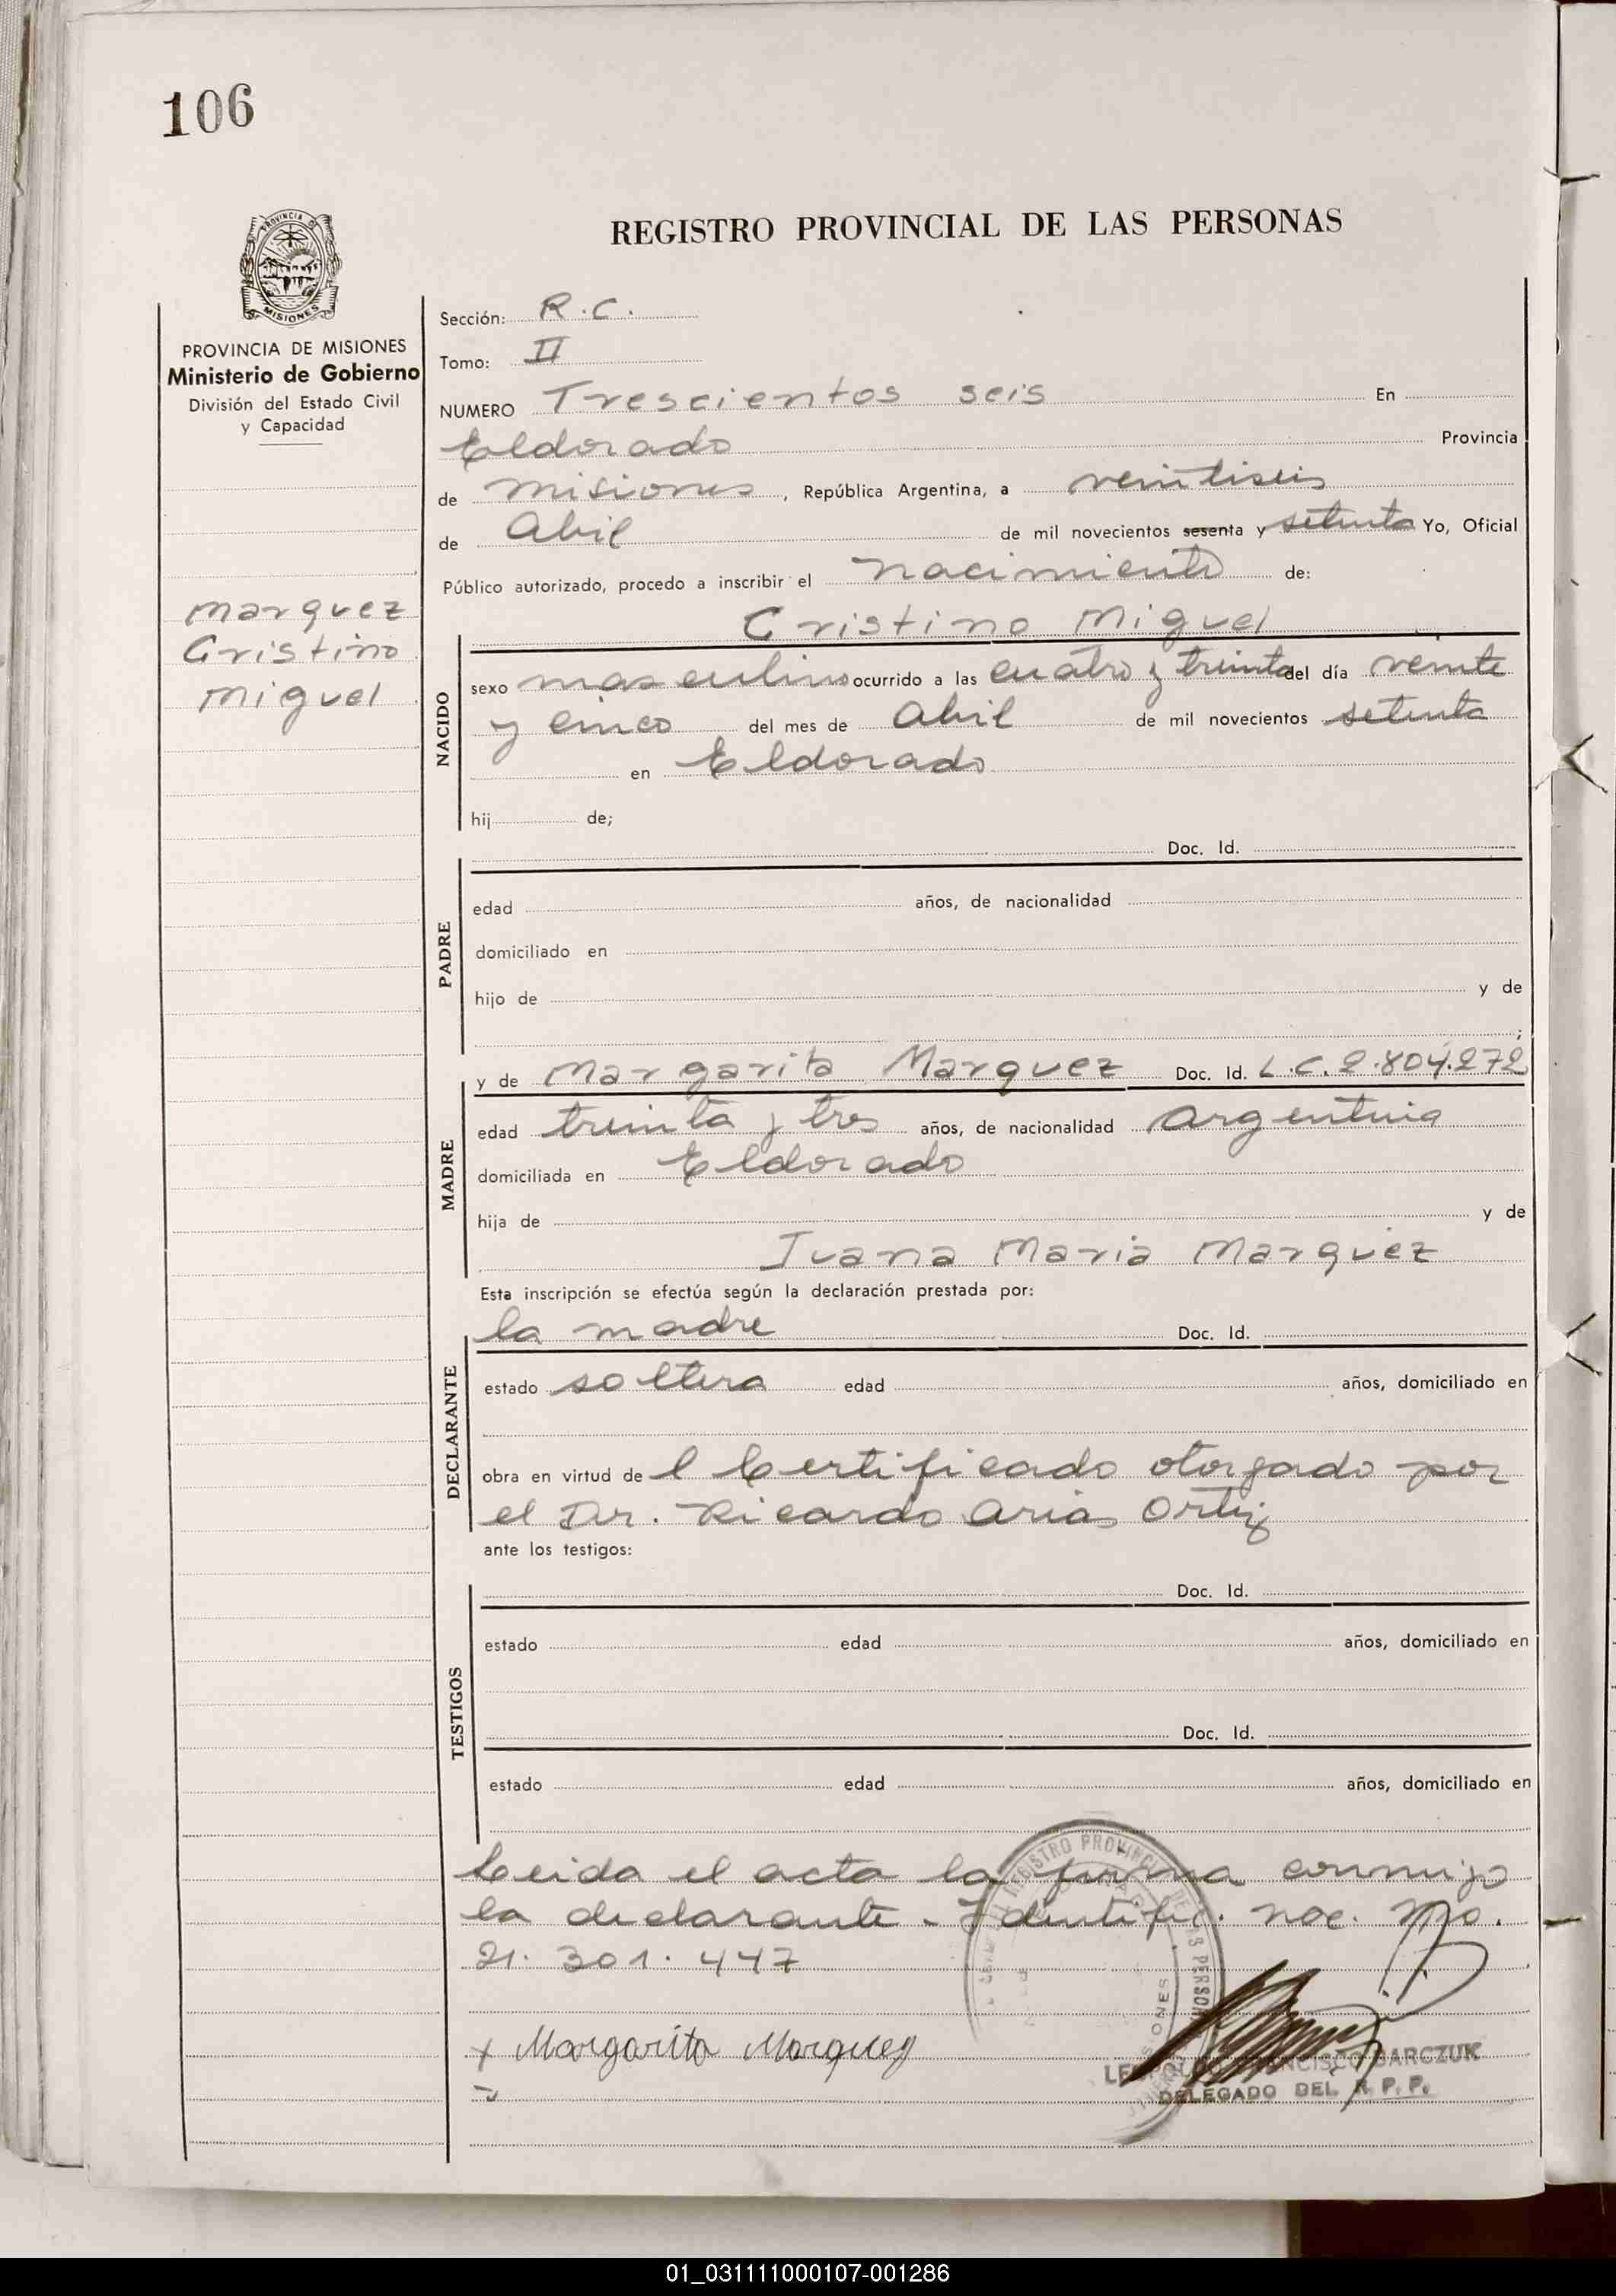 106
REGISTRO PROVINCIAL DE LAS PERSONAS
PROVINCIA D
MISIONES
PROVINCIA DE MISIONES
Ministerio de Gobierno
División del Estado Civil
y Capacidad
Marquez
Cristino
Miguel
Sección: R.C.
Tomo: II
NUMERO Trescientos seis En
Eldorado Provincia
de Misiones, República Argentina, a veintiseis
de Abril de mil novecientos sesenta y setenta Yo, Oficial
Público autorizado, procedo a inscribir el nacimiento de:
Cristino Miguel
NACIDO
sexo masculino ocurrido a las cuatro y treinta del día veinte
y cinco del mes de Abril de mil novecientos setenta
en Eldorado
hij de;
Doc. Id.
PADRE
edad años, de nacionalidad
domiciliado en
hijo de y de
;
y de Margarita Marquez Doc. Id. L.C. 2.804.272
MADRE
edad treinta y tres años, de nacionalidad argentina
domiciliada en Eldorado
hija de y de
Juana Maria Marquez
Esta inscripción se efectúa según la declaración prestada por:
la madre Doc. Id.
DECLARANTE
estado soltera edad años, domiciliado en
obra en virtud de l Certificado otorgado por
el Dr. Ricardo Arias Ortiz
ante los testigos:
Doc. Id.
TESTIGOS
estado edad años, domiciliado en
Doc. Id.
estado edad años, domiciliado en
Leida el acta la firma conmigo
la declarante - Identific. nac. No.
21.301.447
x Margarita Marquez
REGISTRO PROVINCIAL DE LAS PERSONAS
FRANCISCO BARCZUK
DELEGADO DEL R. P. P.
01_031111000107-001286